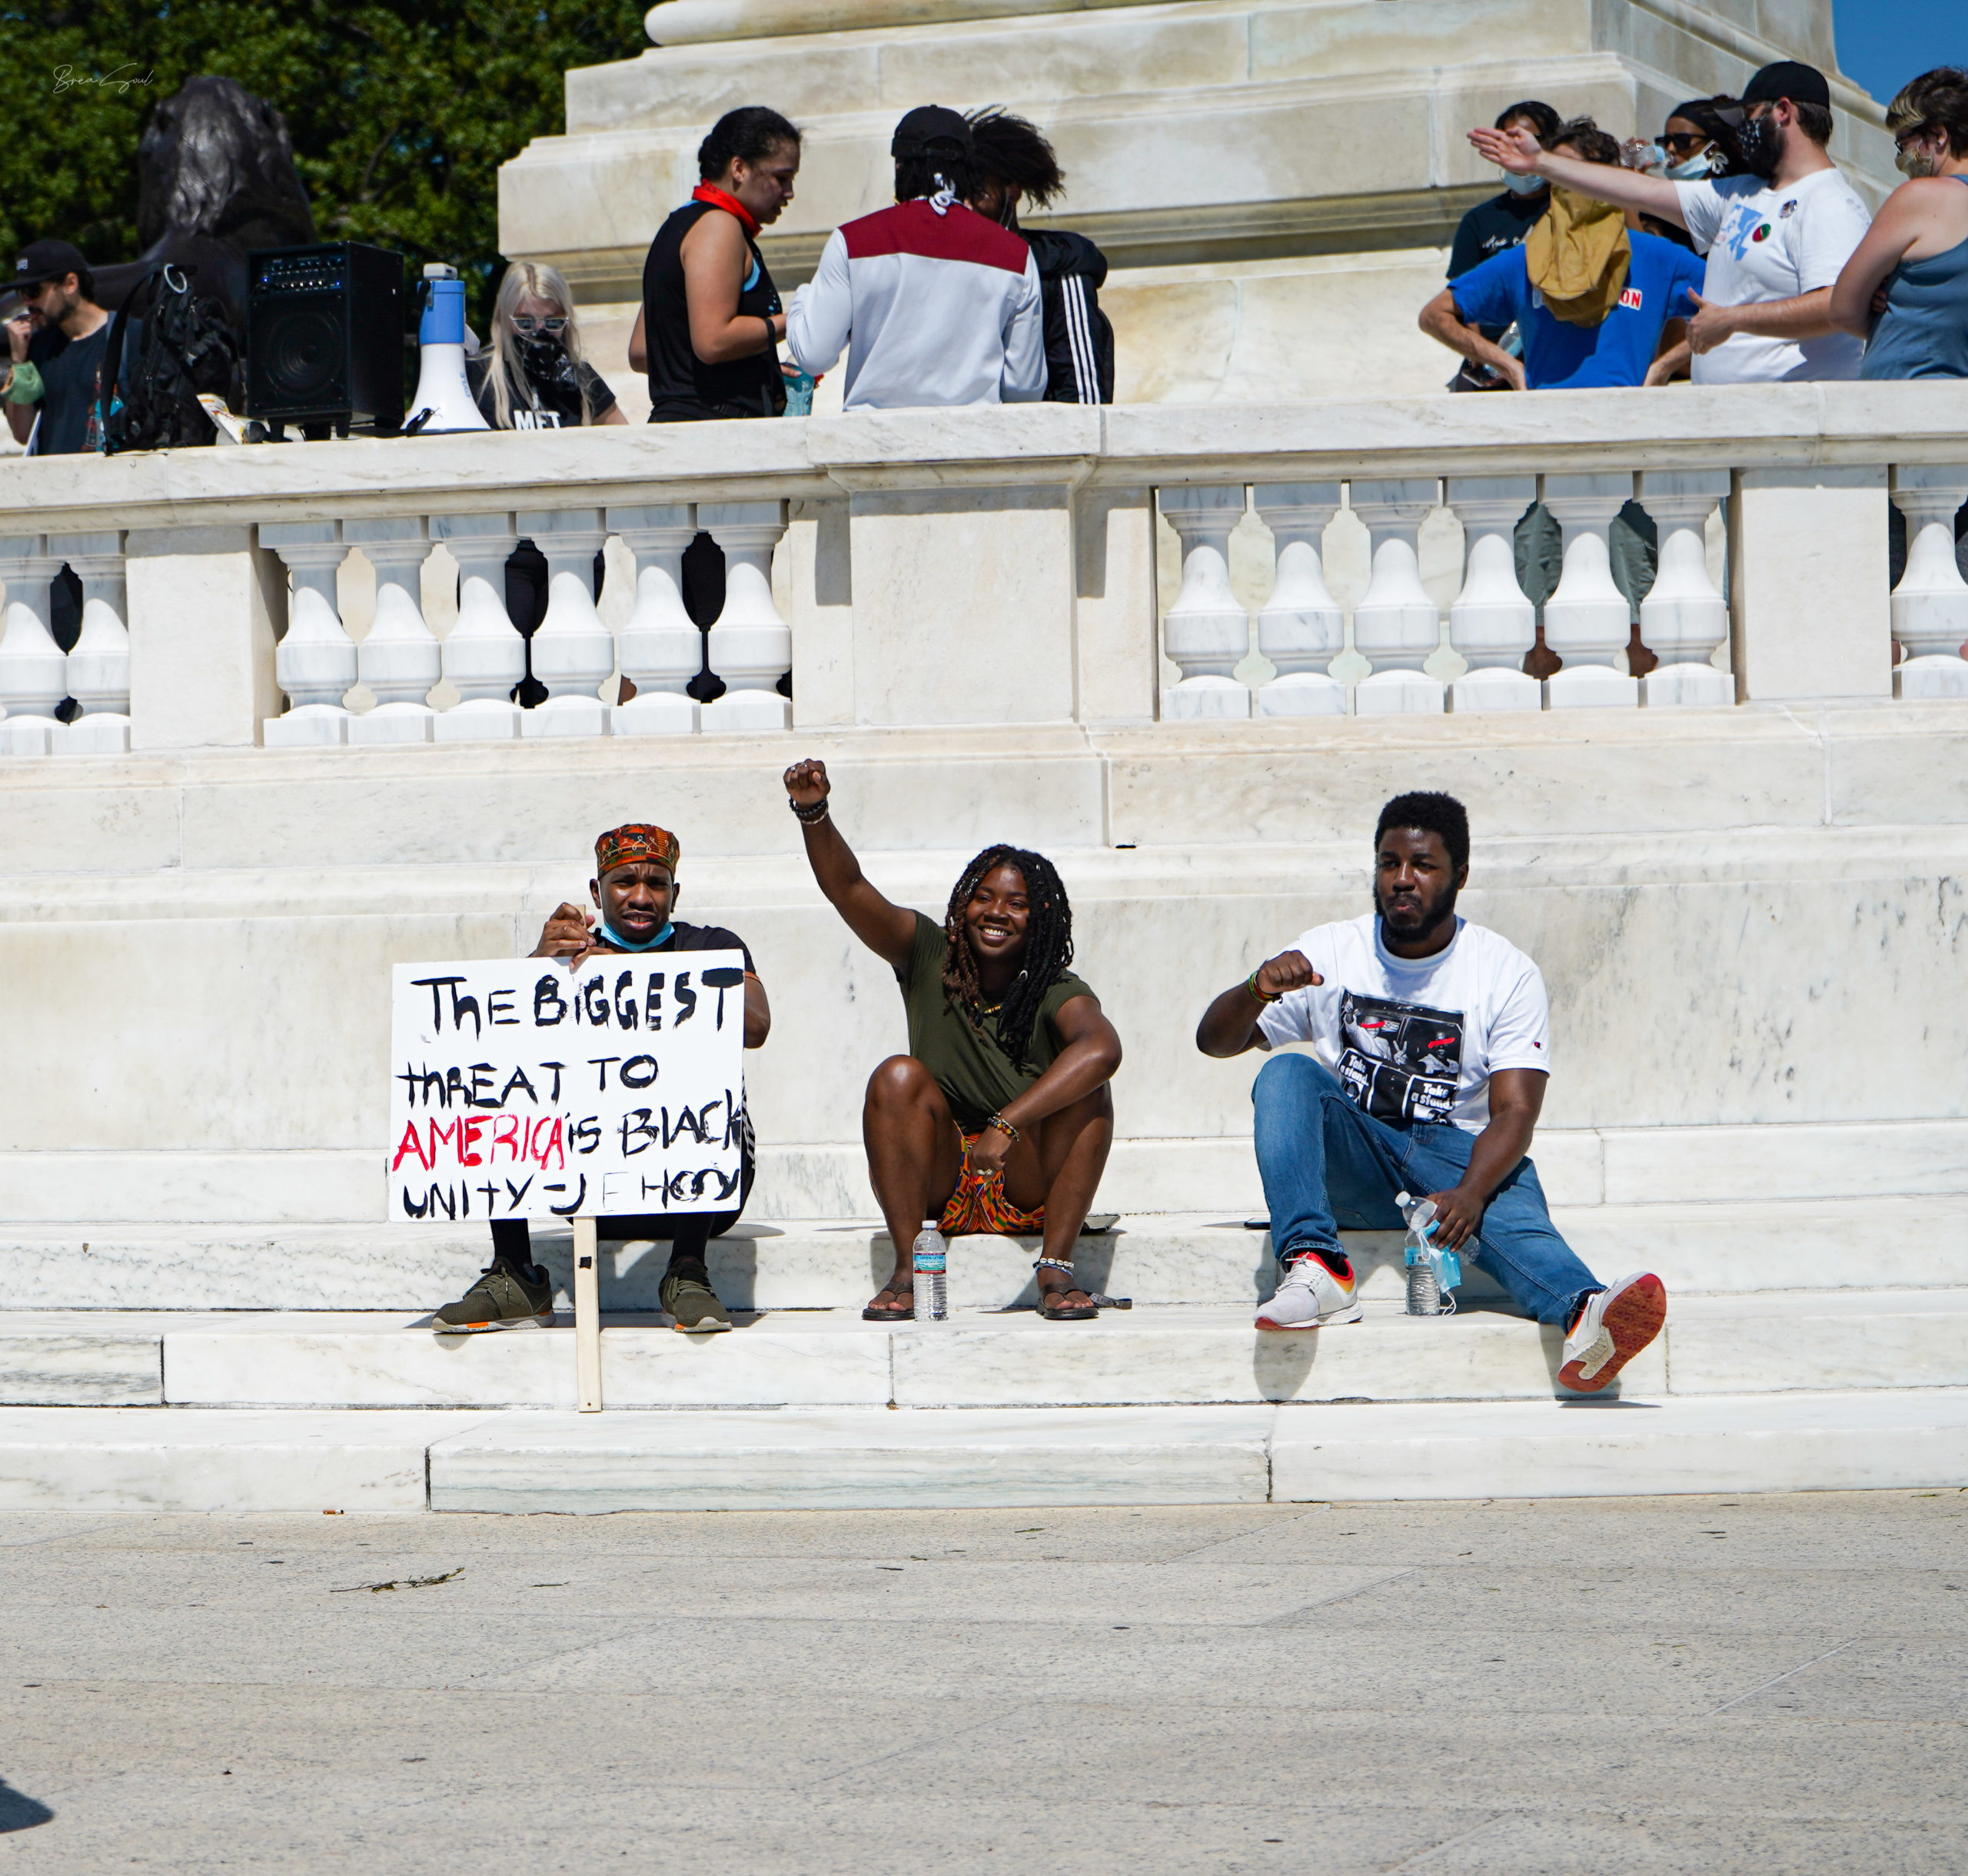 Brea Soul
MFT
ON
THE BIGGEST
THREAT TO
AMERICA is BLACK
UNITY - J E HOOV
Take
a stand.
Take
a stand.